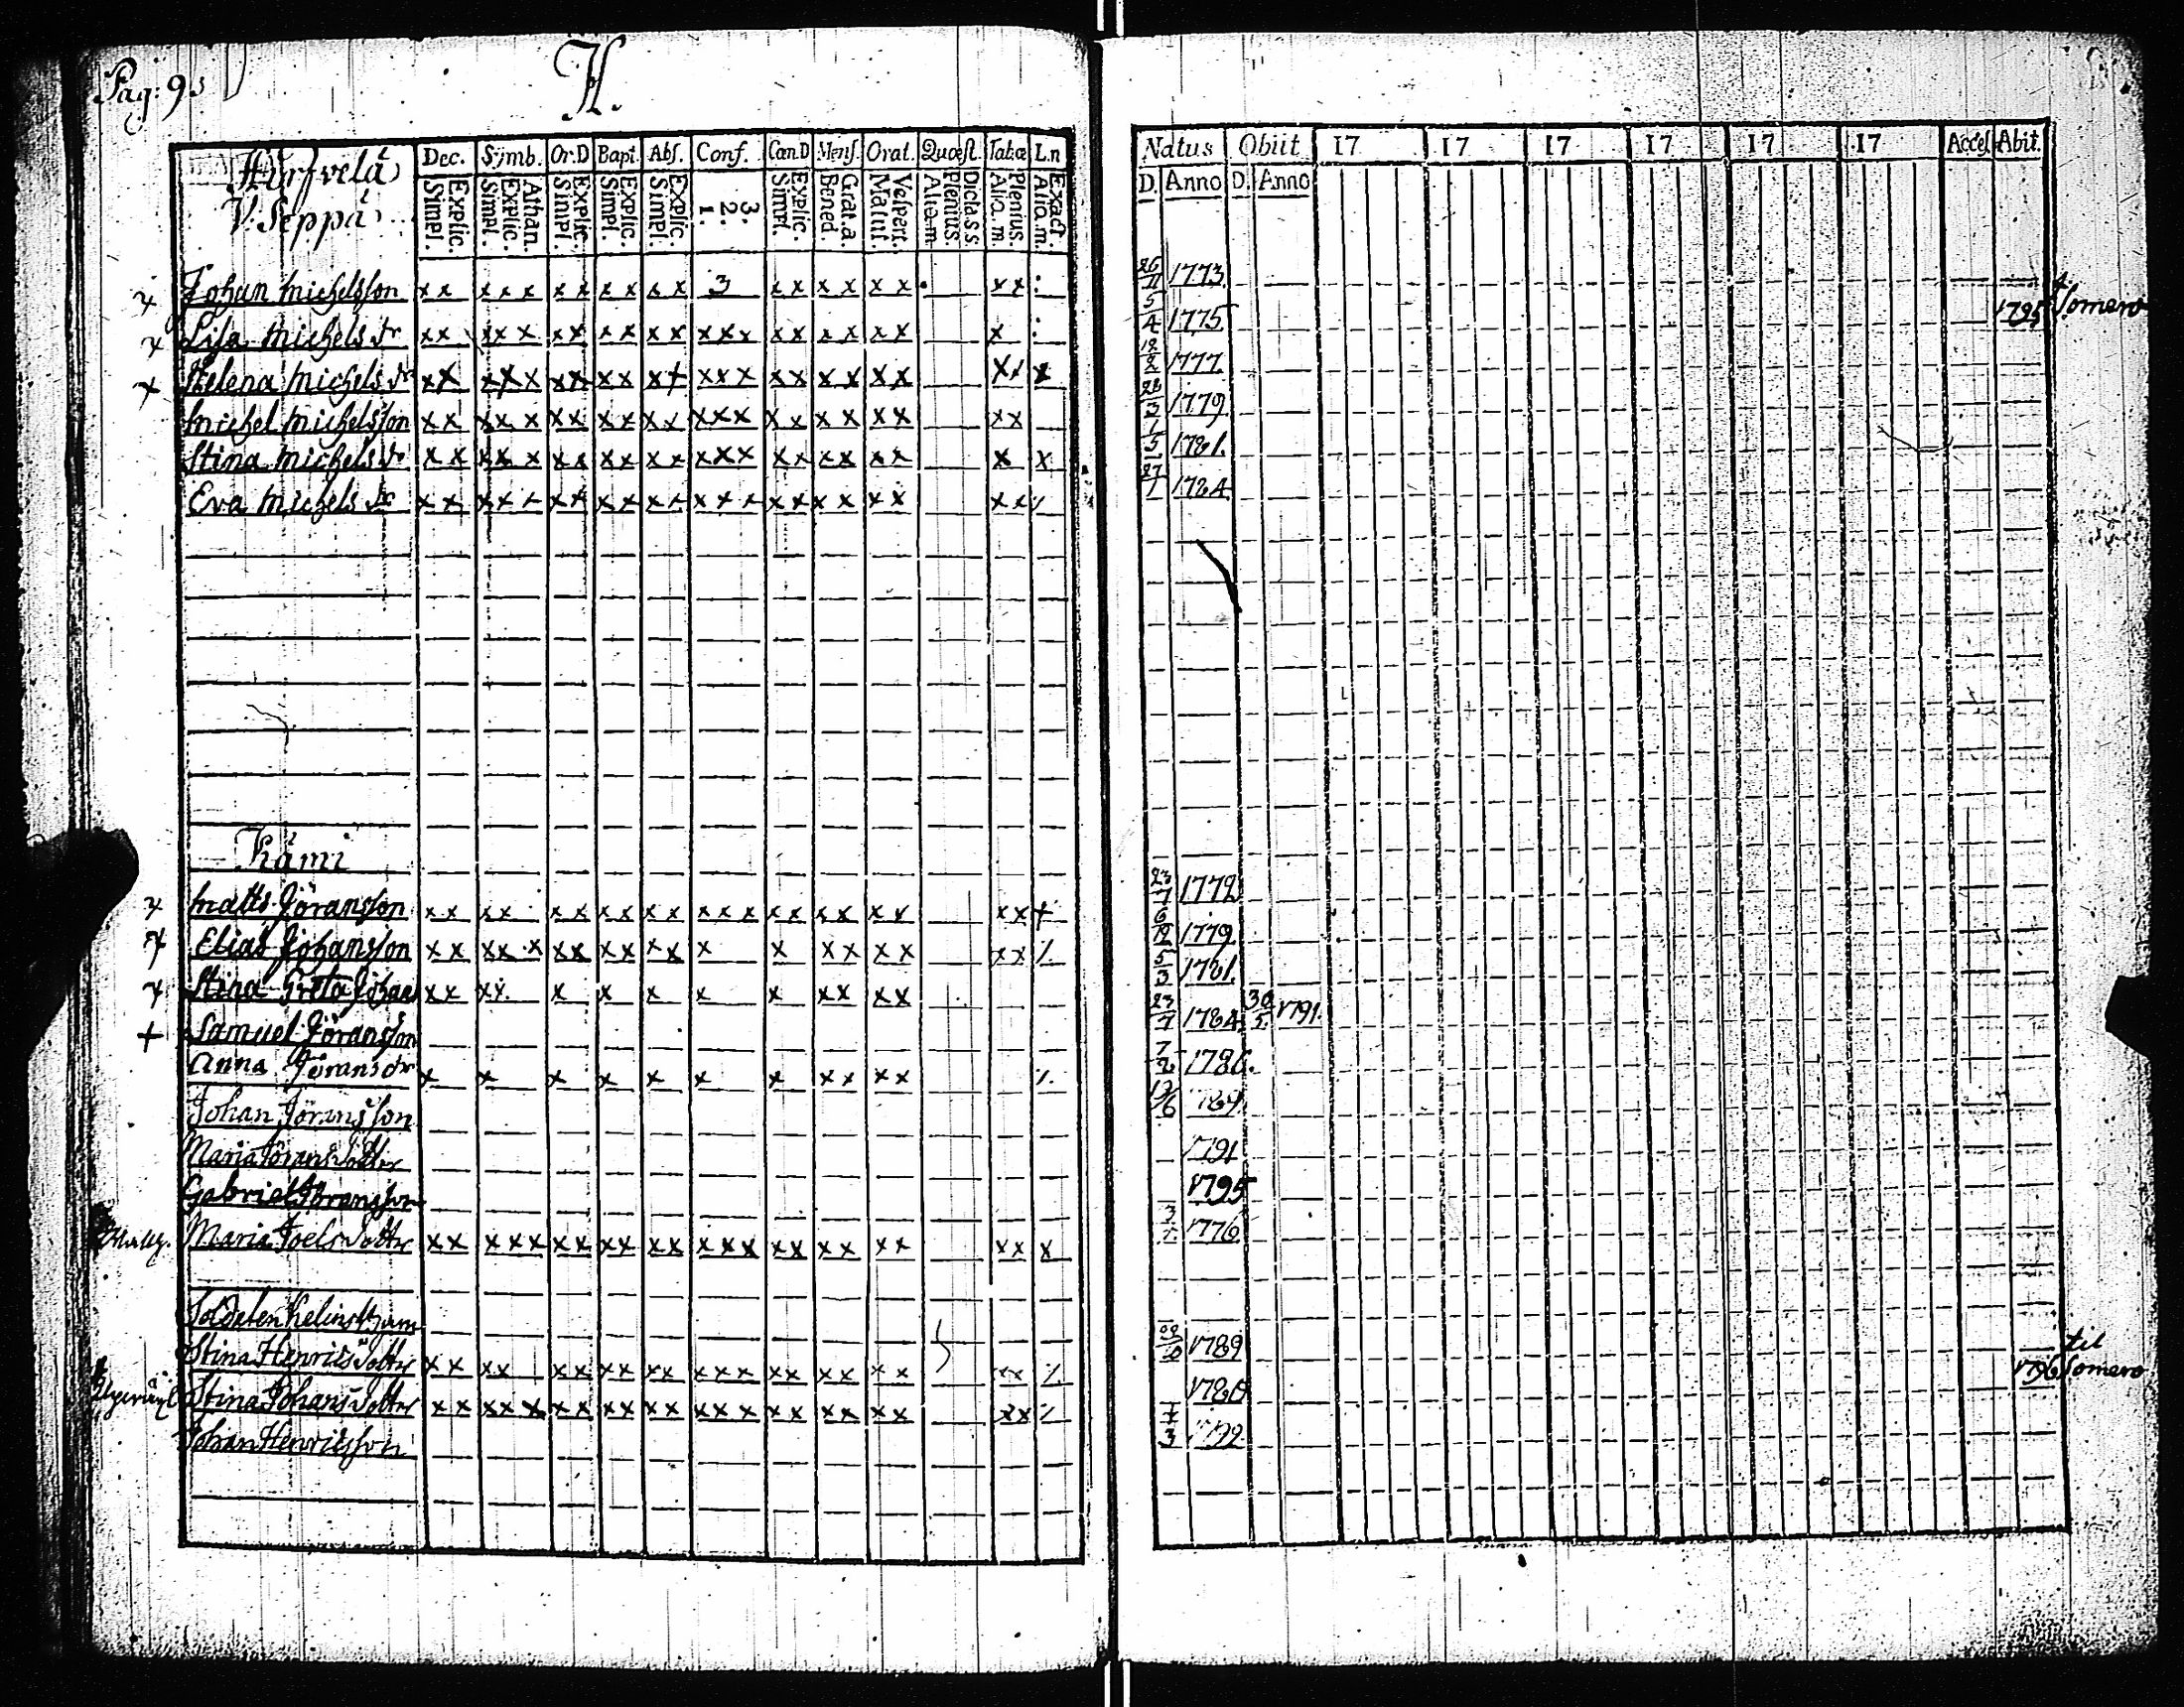 Pag: 93
H.
Hirsvelä
V. Seppä
Dec. Symb. Or.D Bapt. Abs. Conf. Cœn.D Mens. Orat. Quæst. Tabæ L.n
Simpl. Explic. Simpl. Explic. Athan. Simpl. Explic. Simpl. Explic. Simpl. Explic. 1. 2. 3. Simpl. Explic. Bened. Grat. a. Matut. Vespert. Alia m. Plenius. Dicta s s. Alia m. Plenius. Alia m. Exact.
Natus Obiit 17 17 17 17 17 17 Acces. Abit.
D. Anno D. Anno
Johan Michelsson x x x x x x x x x x x 3 x x x x x x x x 26/11 1773
Lisa Michels dr x x x x x x x x x x x x x x x x x x x x x 5/4 1775 1795 t. Somero
Helena Michels dr x x x x x x x x x x x x x x x x x x x x x x x 1777
Michel Michelsson x x x x x x x x x x x x x x x x x x x x x x 1779
Stina Michels dr x x x x x x x x x x x x x x x x x x x x x x 1/5 1781.
Eva Michels dr x x x x x x x x x x x x x x x x x x x x x 27/1 1784
Kämi
Matts Jöransson x x x x x x x x x x x x x x x x x x x x x x 23/7 1772
Elias Johansson x x x x x x x x x x x x x x x x x x x 6/12 1779
Stina Greta Johans x x x x x x x x x x x x x x 5/3 1781.
Samuel Jöransson 23/7 1784 30/5 1791.
Anna Jörans dr x x x x x x x x x x x 7/2 1786.
Johan Jöransson 13/6 1789
Maria Jöransdotter 1791
Gabriel Jöransson 1795
Maria Joelsdotter x x x x x x x x x x x x x x x x x x x x x x x 1776
Soldaten
Stina Henricsdotter x x x x x x x x x x x x x x x x x x x x 1789
Stina Johansdotter x x x x x x x x x x x x x x x x x x x x x x 1780 1796 til Somero
Johan Henricsson 1792